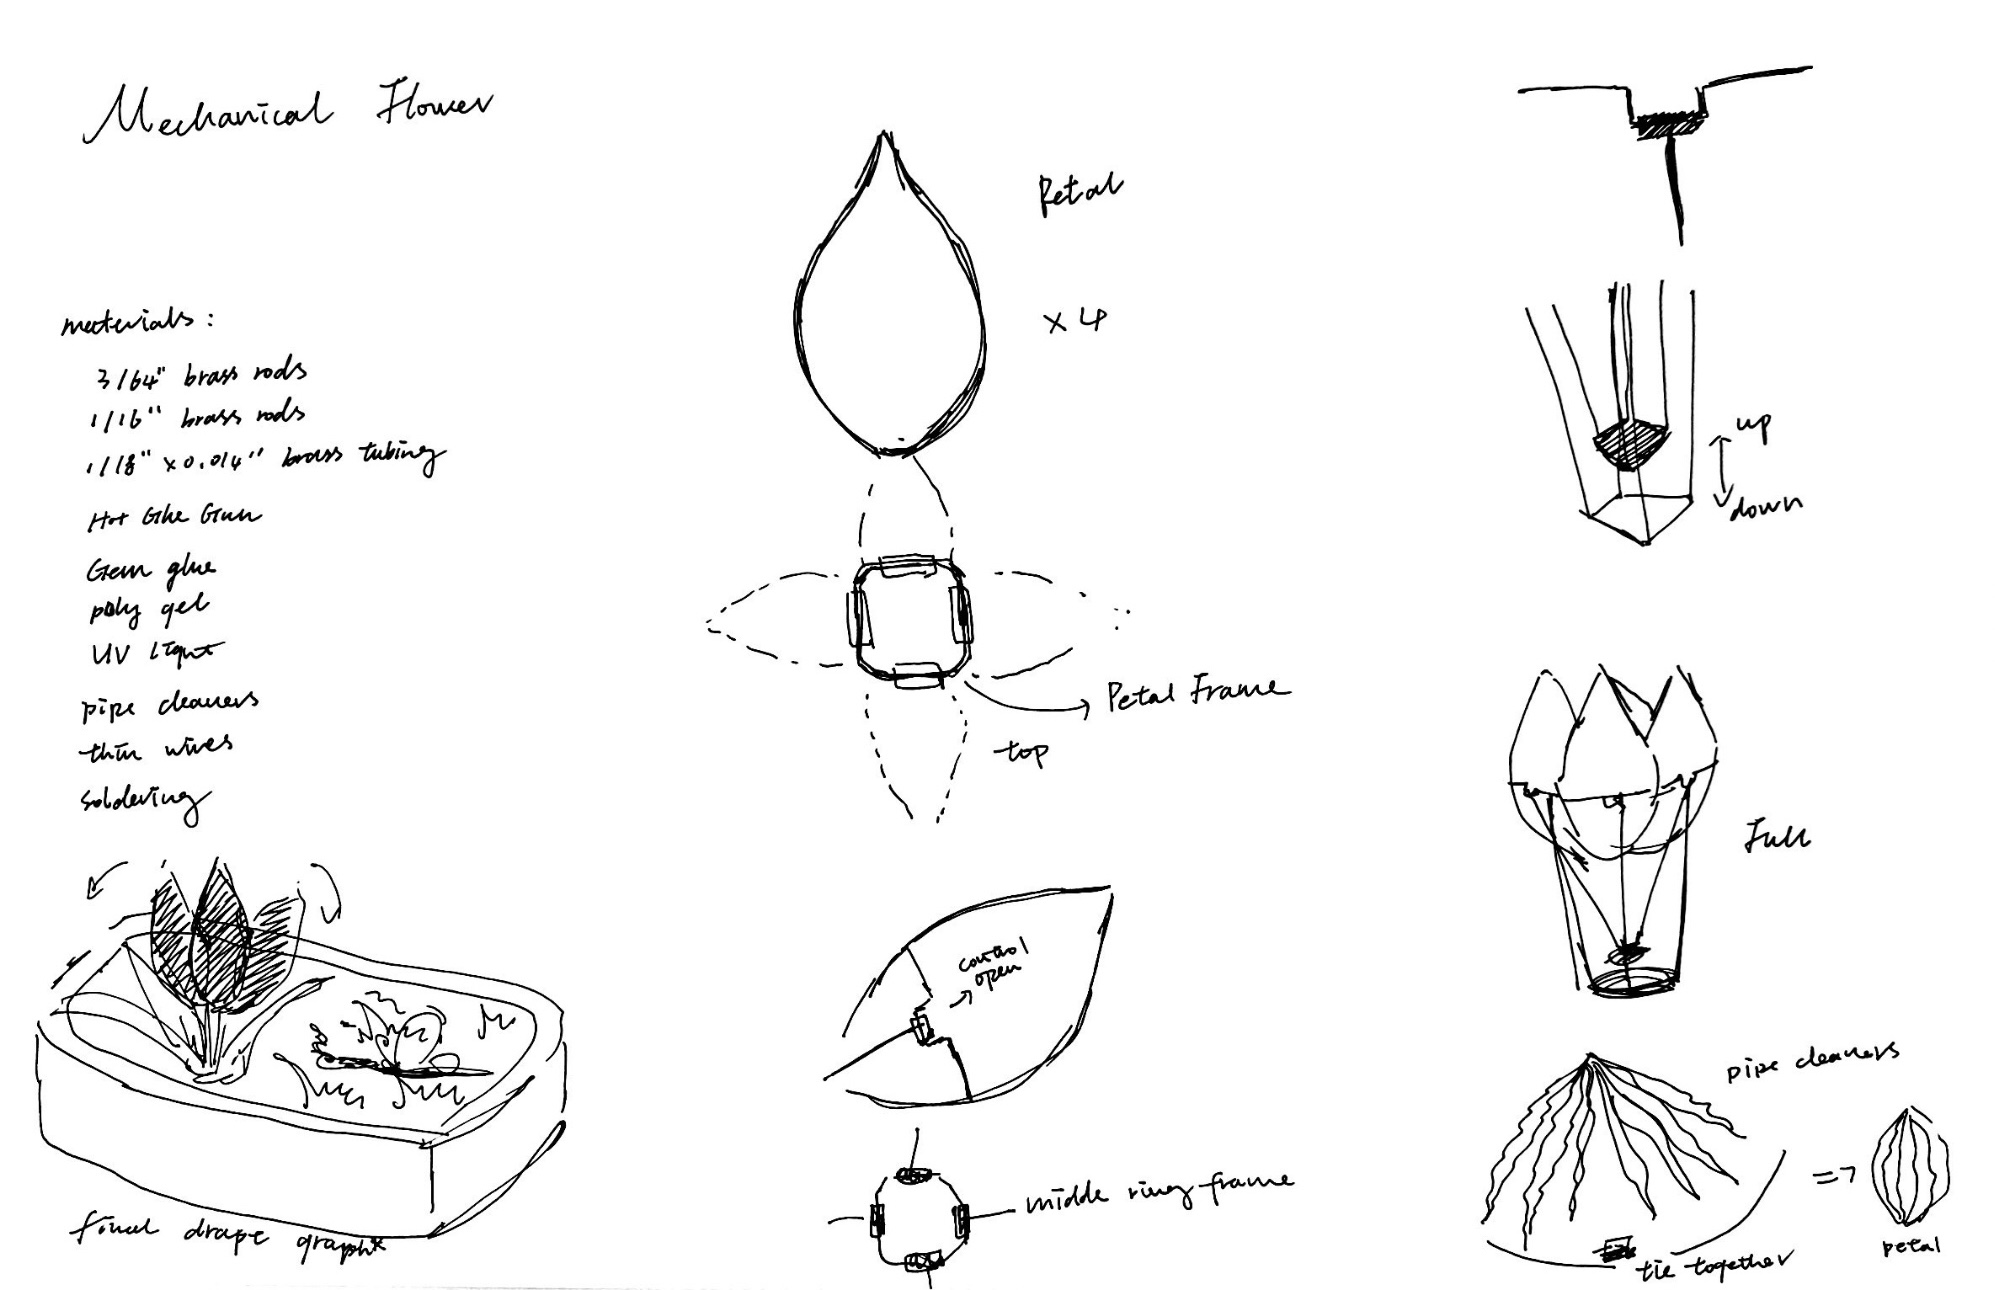 Mechanical Flower
materials :
3/64" brass rods
1/16" brass rods
1/8" x 0.014" brass tubing
Hot Glue Gun
Gem glue
poly gel
UV light
pipe cleaners
thin wires
soldering
final drape graph*
Petal
x 4
Petal Frame
top
control
open
middle ring frame
up
down
Full
pipe cleaners
=>
tie together
petal